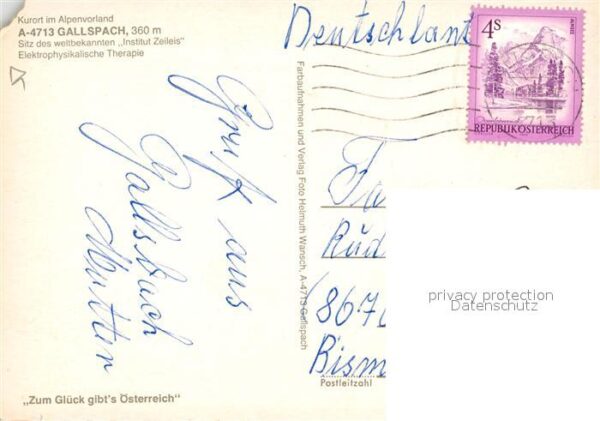 Kurort im Alpenvorland
A-4713 GALLSPACH, 360 m
Sitz des weltbekannten „Institut Zeileis"
Elektrophysikalische Therapie
Gruß aus
Gallsbach
Mutter
„Zum Glück gibt's Österreich"
Farbaufnahmen und Verlag Foto Helmuth Wansch, A-4713 Gallspach
Deutschland
4s
ALMSEE
REPUBLIK ÖSTERREICH
Fa
Rüd
(867
Bism
Postleitzahl
privacy protection
Datenschutz